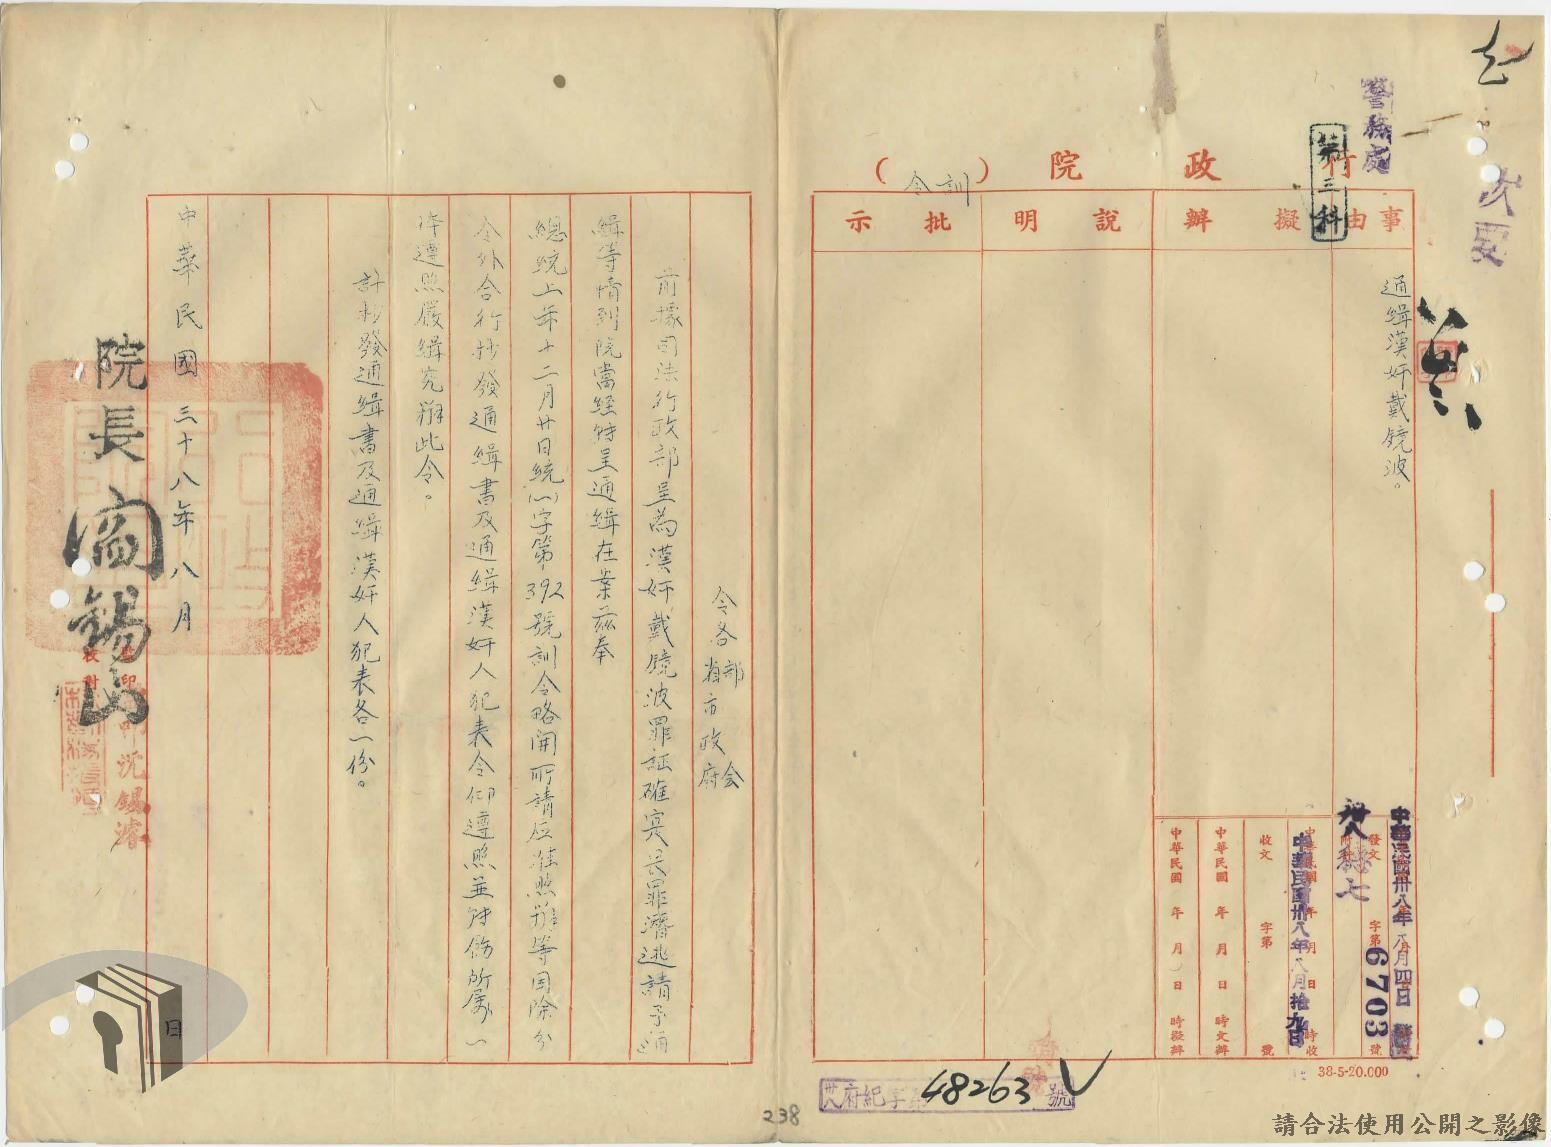 警務處
第三科
行政院(訓令)
事由
擬辦
說明
批示
通緝漢奸戴鏡波。
中華民國卅八年八月四日
發文 字第6703號
附件
中華民國 年 月 日 時收
中華民國卅八年八月拾九日
收文 字第 號
中華民國 年 月 日 時文辦
中華民國 年 月 日 時擬辦
38-5-20.000
卅八府紀字第48263號
令各部会
省市政府
前據司法行政部呈為漢奸戴鏡波罪証確实畏罪潛逃請予通
緝等情到院當經轉呈通緝在案茲奉
總統上年十二月廿日統(一)字第392號訓令略開所請应准照辦等因除分
令外合行抄發通緝書及通緝漢奸人犯表令仰遵照並转飭所属一
体遵照嚴緝究辦此令。
計抄發通緝書及通緝漢奸人犯表各一份。
中華民國三十八年八月 日
院長閻錫山
沈錫濬
238
請合法使用公開之影像